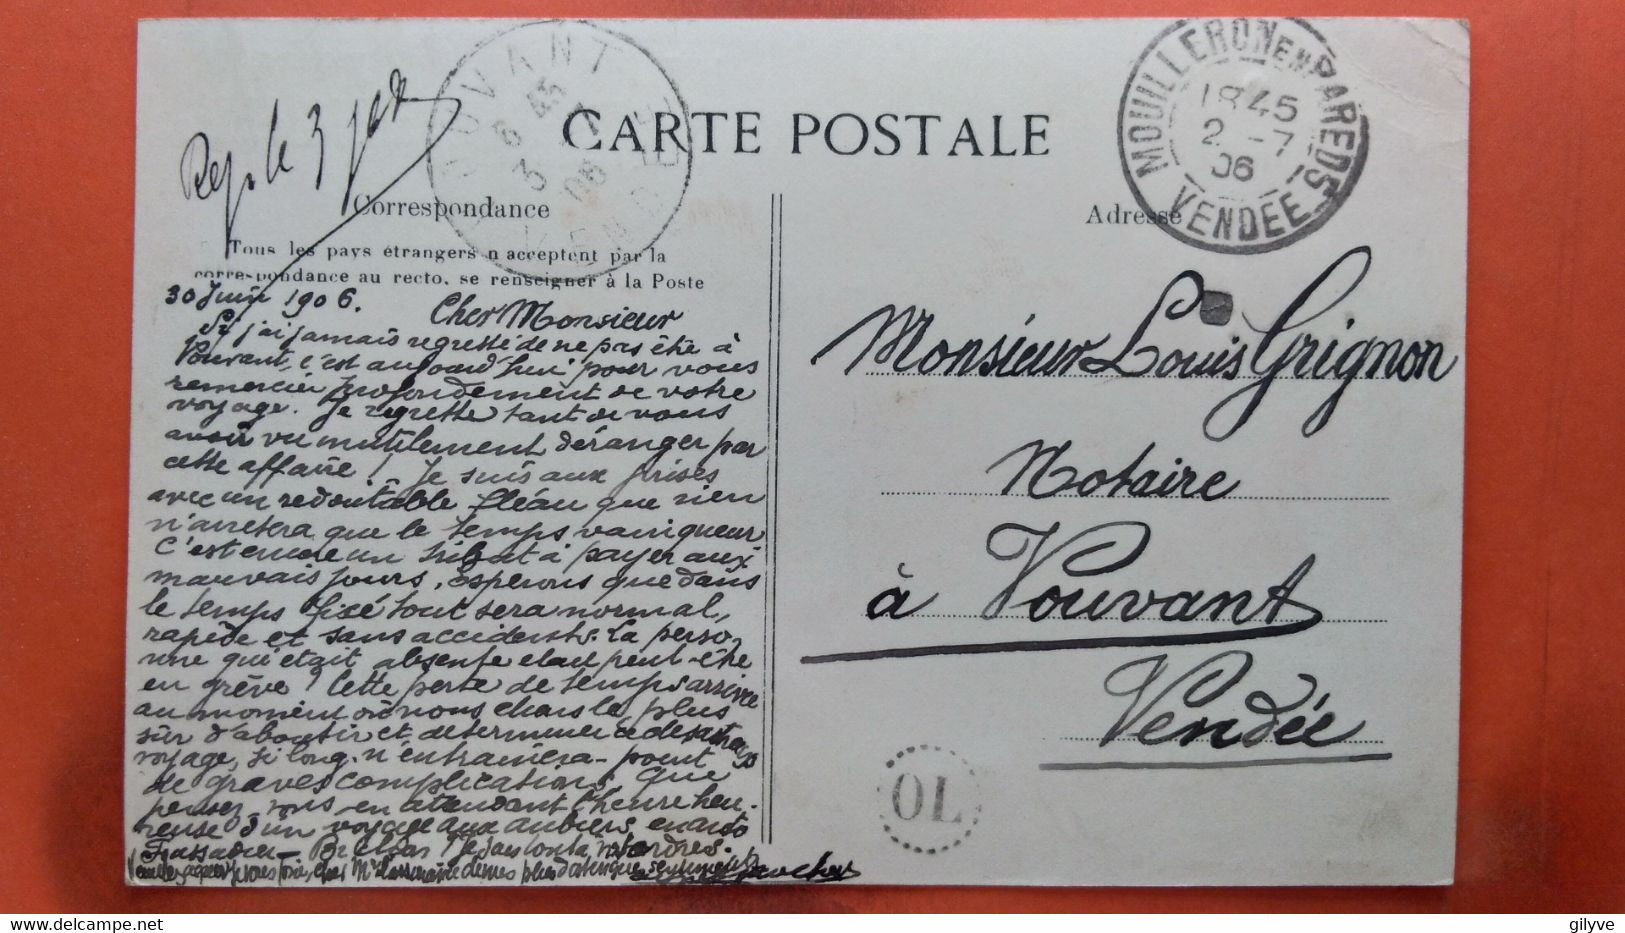 Rep. le 3 juil
VOUVANT
6 45
3 - 7
06
VENDÉE
CARTE POSTALE
MOUILLERON EN PAREDS
1845
2 - 7
06
VENDÉE
Correspondance
Adresse
Tous les pays étrangers n acceptent par la
corre-pondance au recto, se renseigner à la Poste
30 Juin 1906.
Cher Monsieur
Si j'ai jamais regretté de ne pas être à
Vouvant, c'est aujourd'hui pour vous
remercier profondément de votre
voyage. Je regrette tant de vous
avoir vu inutilement déranger par
cette affaire! Je suis aux prises
avec un redoutable fléau que rien
n'arretera que le temps vainqueur
C'est encore un tribut à payer aux
mauvais jours. Esperons que dans
le temps fixé tout sera normal,
rapide et sans accidents. La person
ne qui était absente était peut-être
en grève? Cette perte de temps arrivée
au moment où vous étiez le plus
sûr d'aboutir et determiner ce
voyage, si long. n'entrainera-point
de graves complications. Que
pensez vous en attendant l'heure heu-
reuse d'un voyage aux en auto
Je suis tout à vos ordres.
Monsieur Louis Grignon
Notaire
à Vouvant
Vendée
OL
gilyve